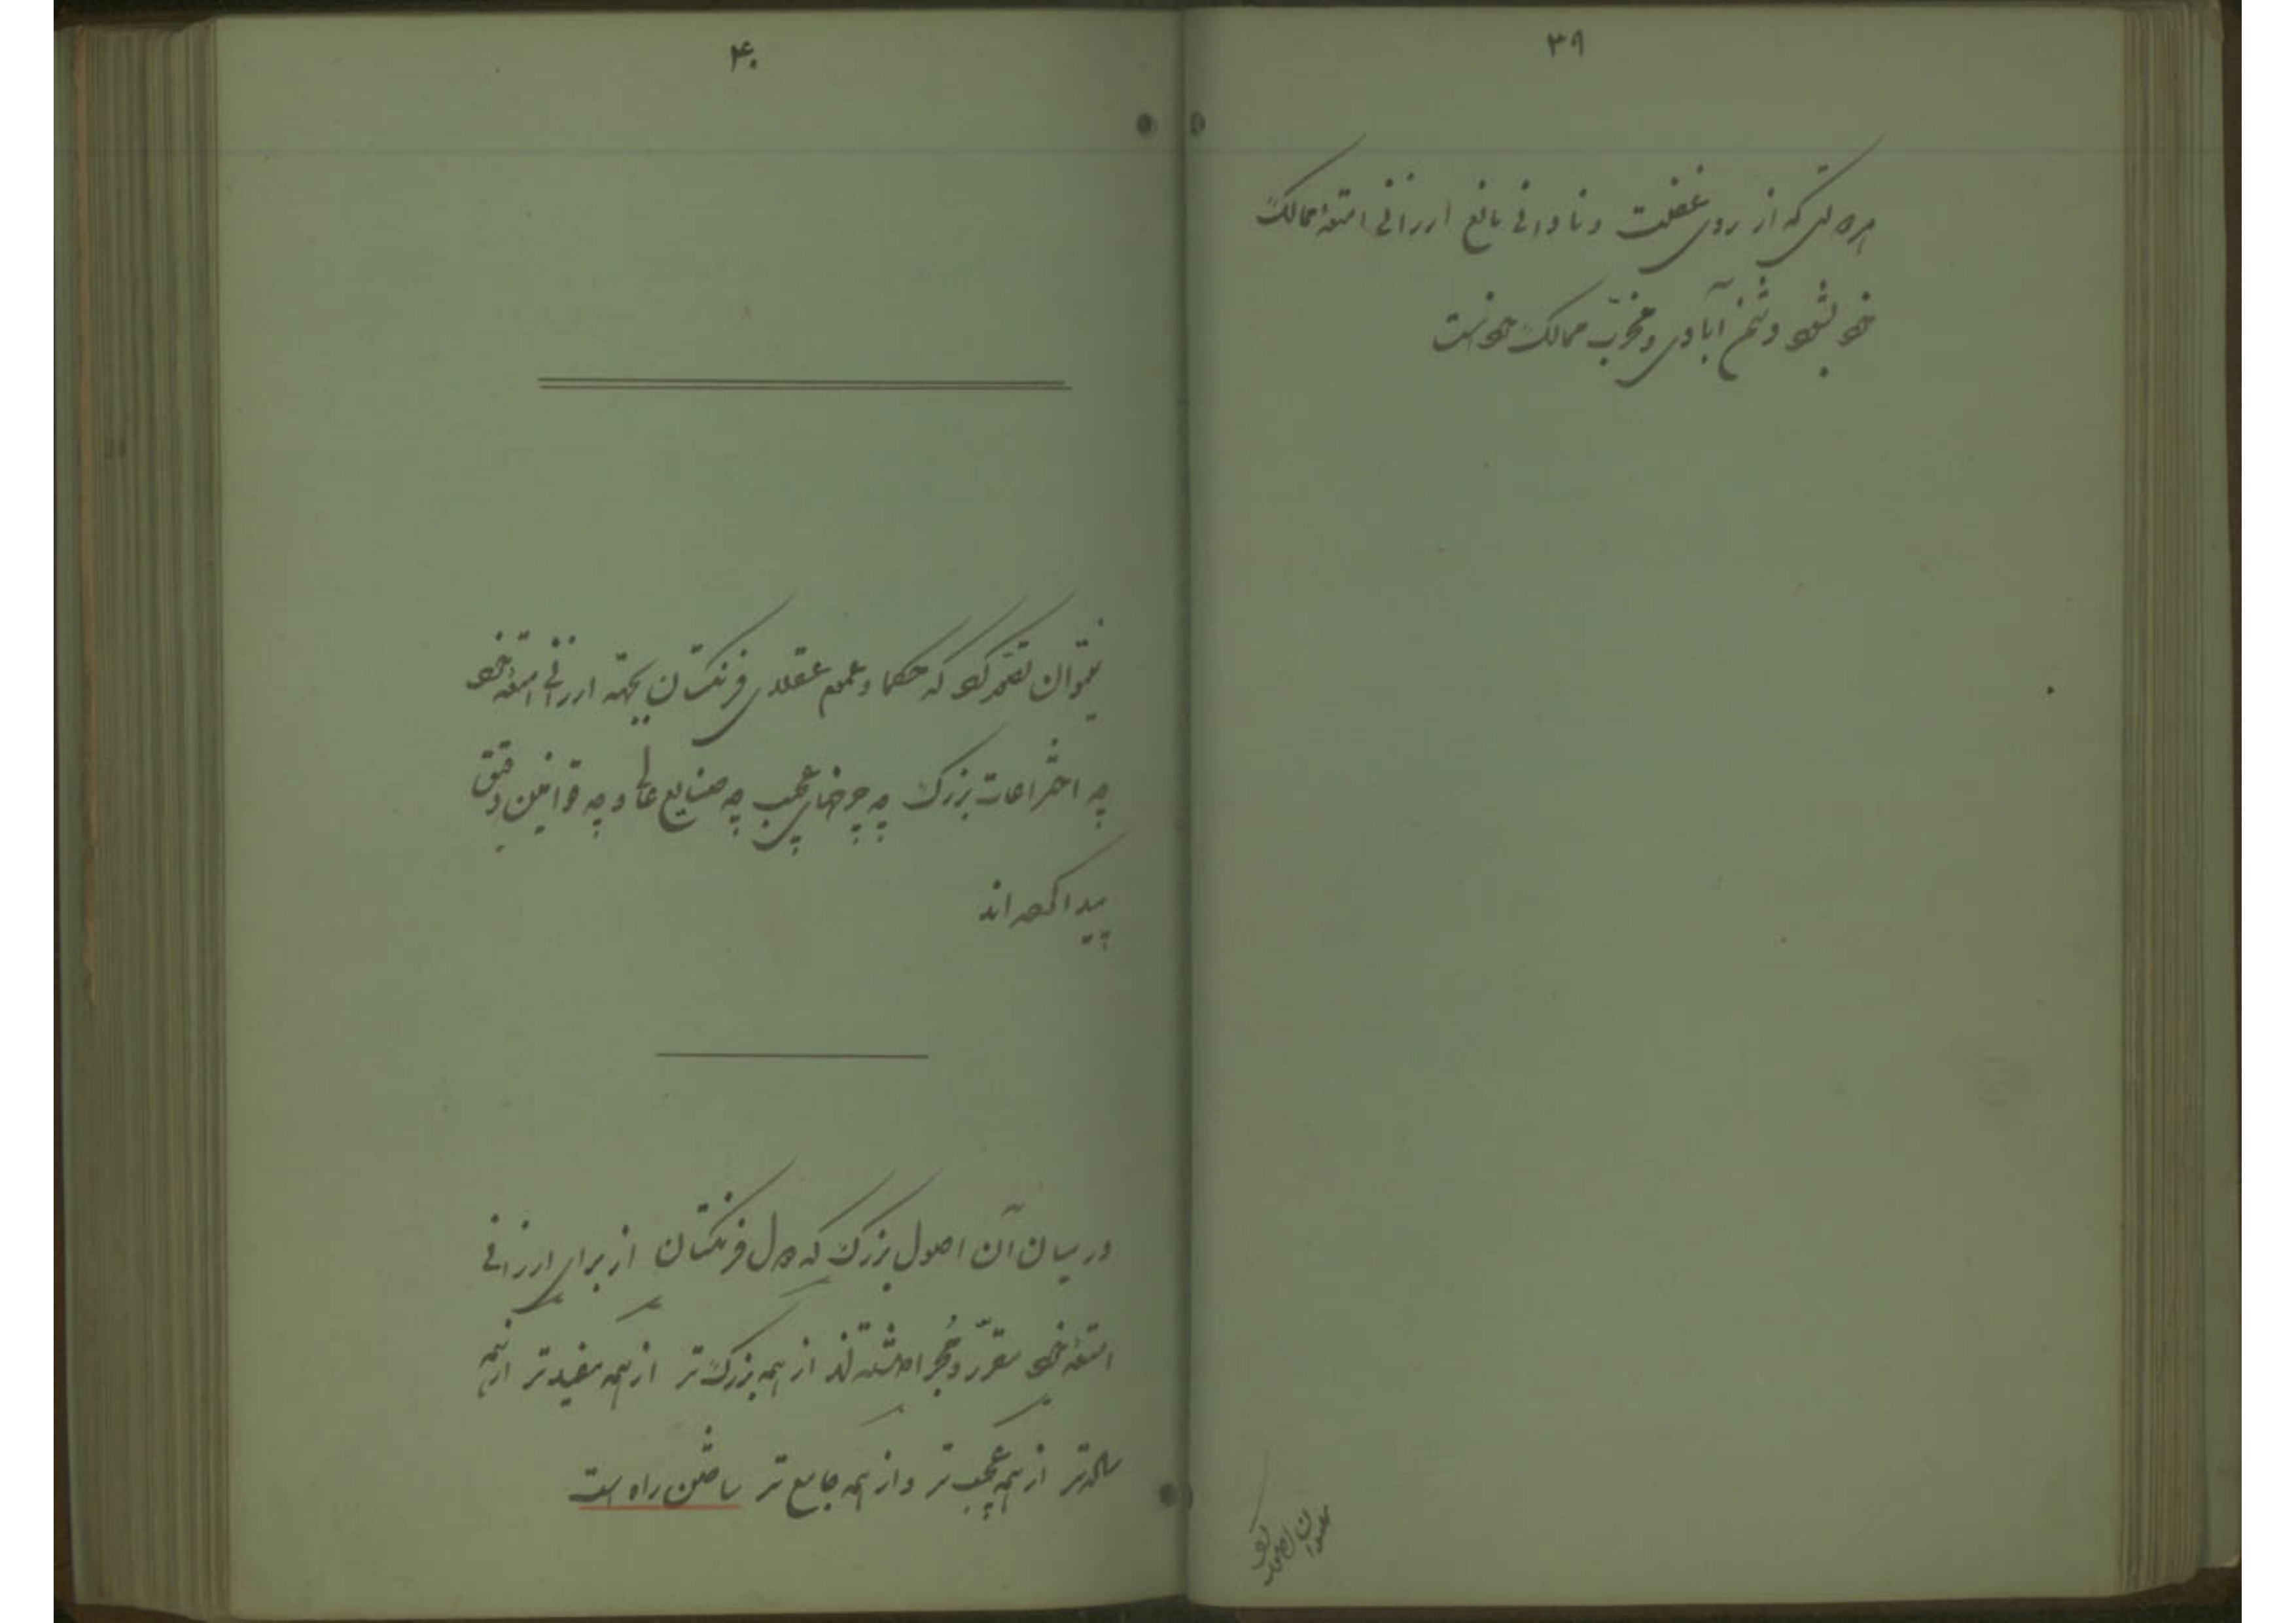 ۳۹
هر دولتی که از روی غفلت و نادانی مانع ارزانی امتعهٔ ممالک
خود بشود دشمن آبادی و مخرّب ممالک خود است
نمیتوان تصور کرد
۴۰
نمیتوان تصوّر کرد که حکما و عموم عقلای فرنگستان بجهته ارزانی امتعه خود
چه اختراعات بزرگ چه چرخهای عجیب چه صنایع عالی و چه قوانین دقیق
پیدا کرده اند
در میان آن اصول بزرگ که دول فرنگستان از برای ارزانی
امتعه خود مقرّر و مُجرا داشته اند از همه بزرگ تر از همه مفیدتر از همه
سالم تر از همه عجیب تر و از همه جامع تر ساختن راه است